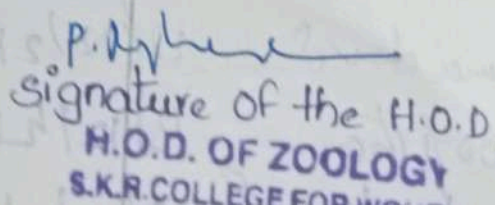 signature of the H.O.D
H.O.D. OF ZOOLOGY
S.K.R. COLLEGE FOR